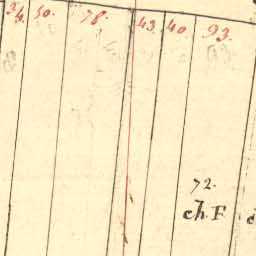 34. 50. 78. 43. 40. 93.
72.
ch F